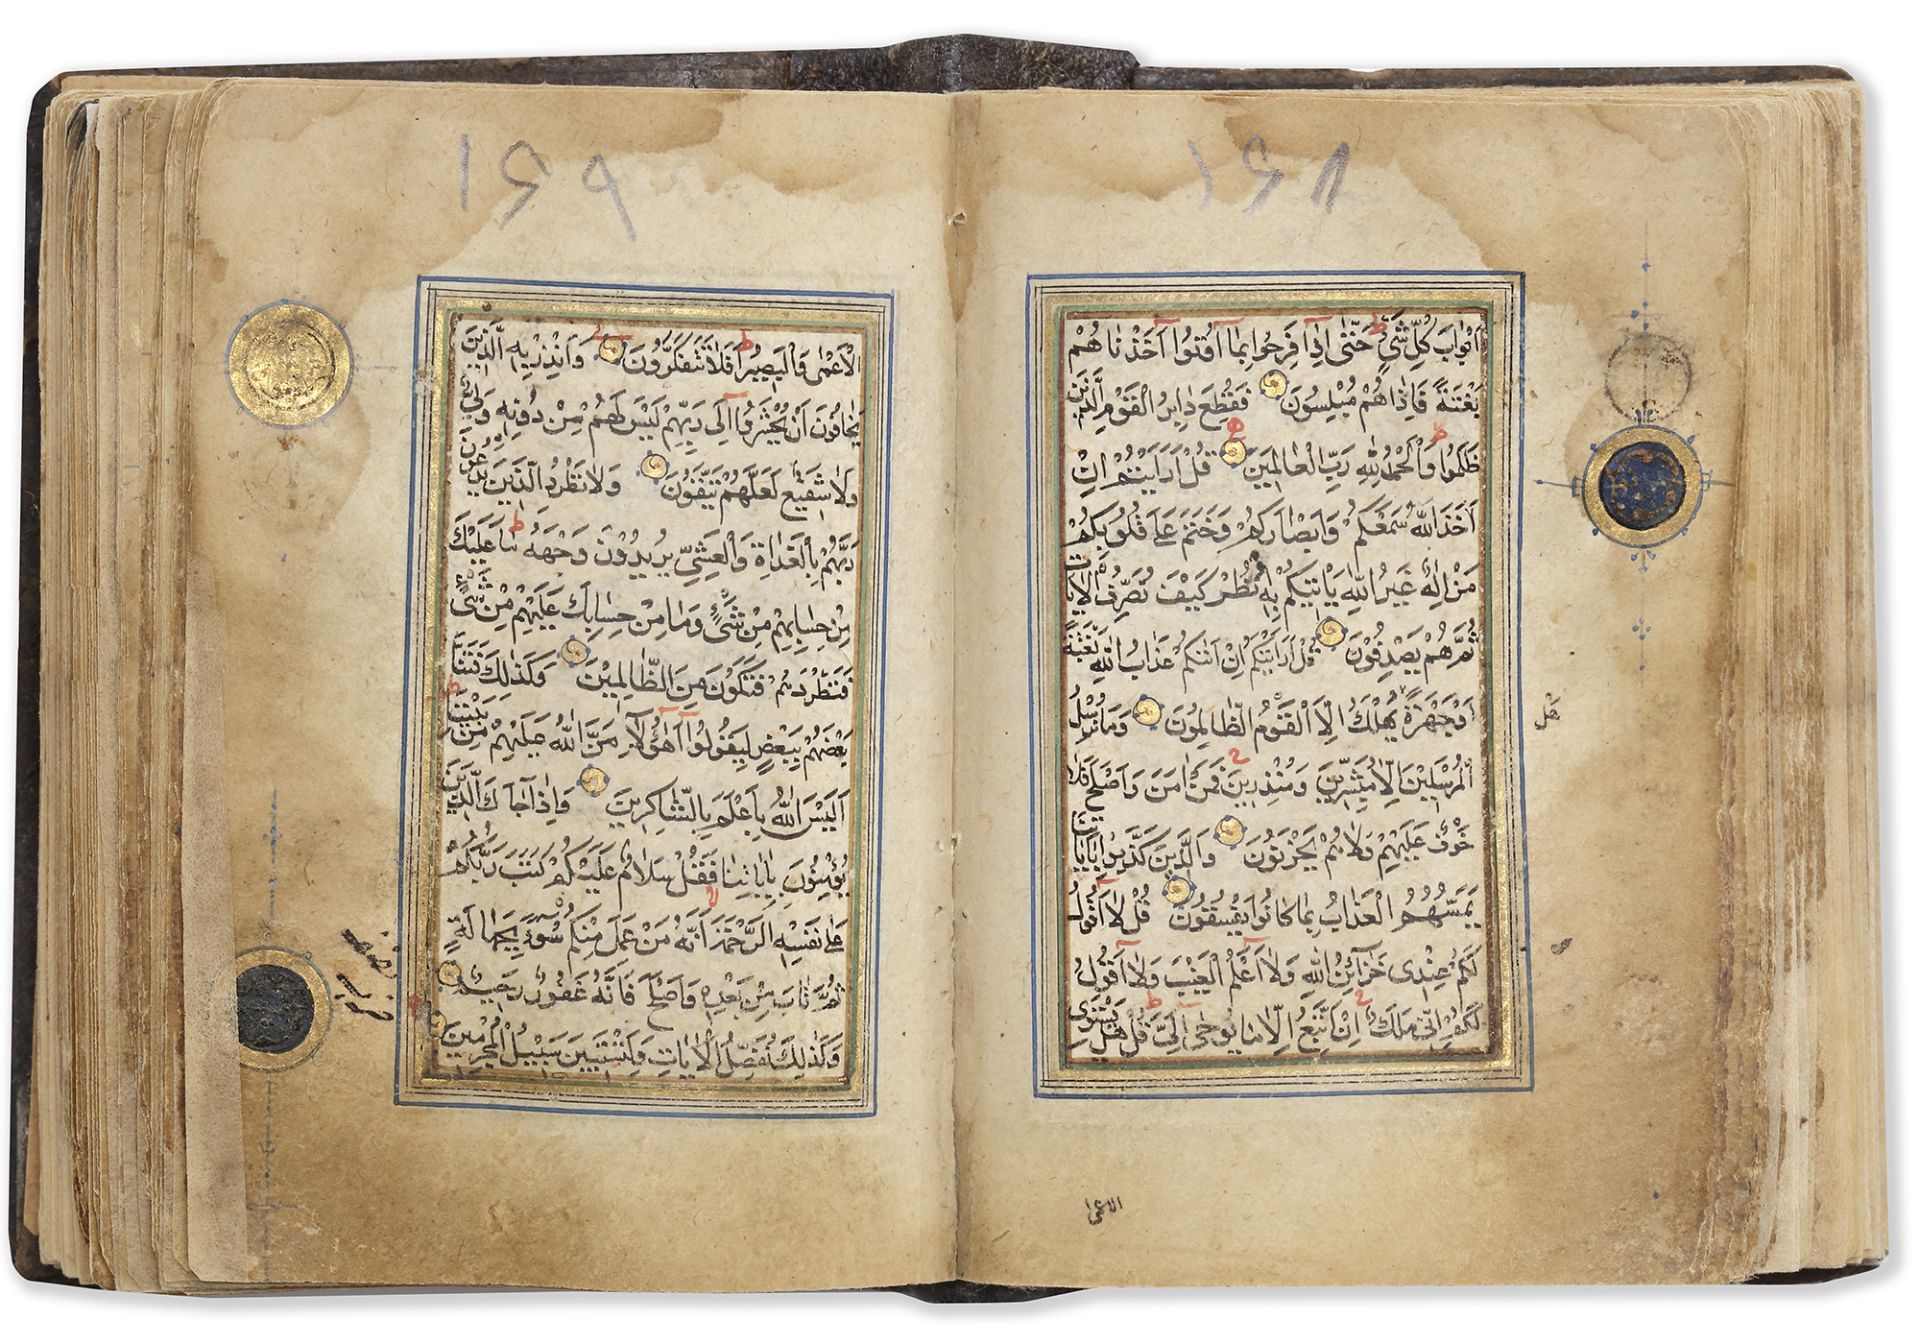 ١٤٨
أَبْوَابَ كُلِّ شَيْءٍ حَتَّى إِذَا فَرِحُوا بِمَا أُوتُوا أَخَذْنَاهُمْ
بَغْتَةً فَإِذَا هُمْ مُبْلِسُونَ فَقُطِعَ دَابِرُ الْقَوْمِ الَّذِينَ
ظَلَمُوا وَالْحَمْدُ لِلَّهِ رَبِّ الْعَالَمِينَ قُلْ أَرَأَيْتُمْ إِنْ
أَخَذَ اللَّهُ سَمْعَكُمْ وَأَبْصَارَكُمْ وَخَتَمَ عَلَى قُلُوبِكُمْ
مَنْ إِلَهٌ غَيْرُ اللَّهِ يَأْتِيكُمْ بِهِ انْظُرْ كَيْفَ نُصَرِّفُ الْآيَاتِ
ثُمَّ هُمْ يَصْدِفُونَ قُلْ أَرَأَيْتَكُمْ إِنْ أَتَاكُمْ عَذَابُ اللَّهِ بَغْتَةً
أَوْ جَهْرَةً هَلْ يُهْلَكُ إِلَّا الْقَوْمُ الظَّالِمُونَ وَمَا نُرْسِلُ
الْمُرْسَلِينَ إِلَّا مُبَشِّرِينَ وَمُنْذِرِينَ فَمَنْ آمَنَ وَأَصْلَحَ فَلَا
خَوْفٌ عَلَيْهِمْ وَلَا هُمْ يَحْزَنُونَ وَالَّذِينَ كَذَّبُوا بِآيَاتِنَا
يَمَسُّهُمُ الْعَذَابُ بِمَا كَانُوا يَفْسُقُونَ قُلْ لَا أَقُولُ
لَكُمْ عِنْدِي خَزَائِنُ اللَّهِ وَلَا أَعْلَمُ الْغَيْبَ وَلَا أَقُولُ
لَكُمْ إِنِّي مَلَكٌ إِنْ أَتَّبِعُ إِلَّا مَا يُوحَى إِلَيَّ قُلْ هَلْ يَسْتَوِي
هل
الاعمى
١٤٩
الْأَعْمَى وَالْبَصِيرُ أَفَلَا تَتَفَكَّرُونَ وَأَنْذِرْ بِهِ الَّذِينَ
يَخَافُونَ أَنْ يُحْشَرُوا إِلَى رَبِّهِمْ لَيْسَ لَهُمْ مِنْ دُونِهِ وَلِيٌّ
وَلَا شَفِيعٌ لَعَلَّهُمْ يَتَّقُونَ وَلَا تَطْرُدِ الَّذِينَ يَدْعُونَ
رَبَّهُمْ بِالْغَدَاةِ وَالْعَشِيِّ يُرِيدُونَ وَجْهَهُ مَا عَلَيْكَ
مِنْ حِسَابِهِمْ مِنْ شَيْءٍ وَمَا مِنْ حِسَابِكَ عَلَيْهِمْ مِنْ شَيْءٍ
فَتَطْرُدَهُمْ فَتَكُونَ مِنَ الظَّالِمِينَ وَكَذَلِكَ فَتَنَّا
بَعْضَهُمْ بِبَعْضٍ لِيَقُولُوا أَهَؤُلَاءِ مَنَّ اللَّهُ عَلَيْهِمْ مِنْ بَيْنِنَا
أَلَيْسَ اللَّهُ بِأَعْلَمَ بِالشَّاكِرِينَ وَإِذَا جَاءَكَ الَّذِينَ
يُؤْمِنُونَ بِآيَاتِنَا فَقُلْ سَلَامٌ عَلَيْكُمْ كَتَبَ رَبُّكُمْ
عَلَى نَفْسِهِ الرَّحْمَةَ أَنَّهُ مَنْ عَمِلَ مِنْكُمْ سُوءًا بِجَهَالَةٍ
ثُمَّ تَابَ مِنْ بَعْدِهِ وَأَصْلَحَ فَأَنَّهُ غَفُورٌ رَحِيمٌ
وَكَذَلِكَ نُفَصِّلُ الْآيَاتِ وَلِتَسْتَبِينَ سَبِيلُ الْمُجْرِمِينَ